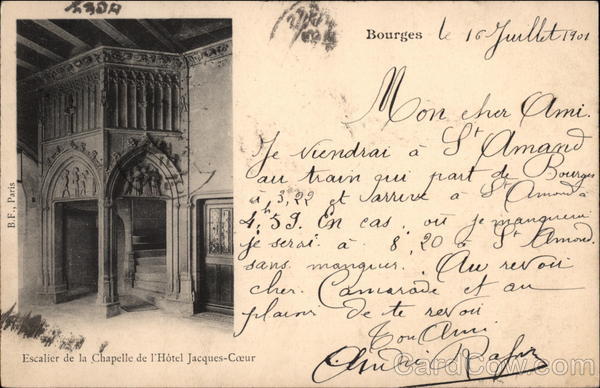 Bourges le 16 Juillet 1901
Mon cher Ami.
Je viendrai à St Amand
au train qui part de Bourges
à 3,22 et j'arrive à St Amand à
4h 59. En cas, où je manquerai
je serai à 8,20 à St Amand.
sans manquer. Au revoir
cher Camarade et au
plaisir de te revoir
Ton Ami.
B. F., Paris
Escalier de la Chapelle de l'Hôtel Jacques-Cœur
CardCow.com